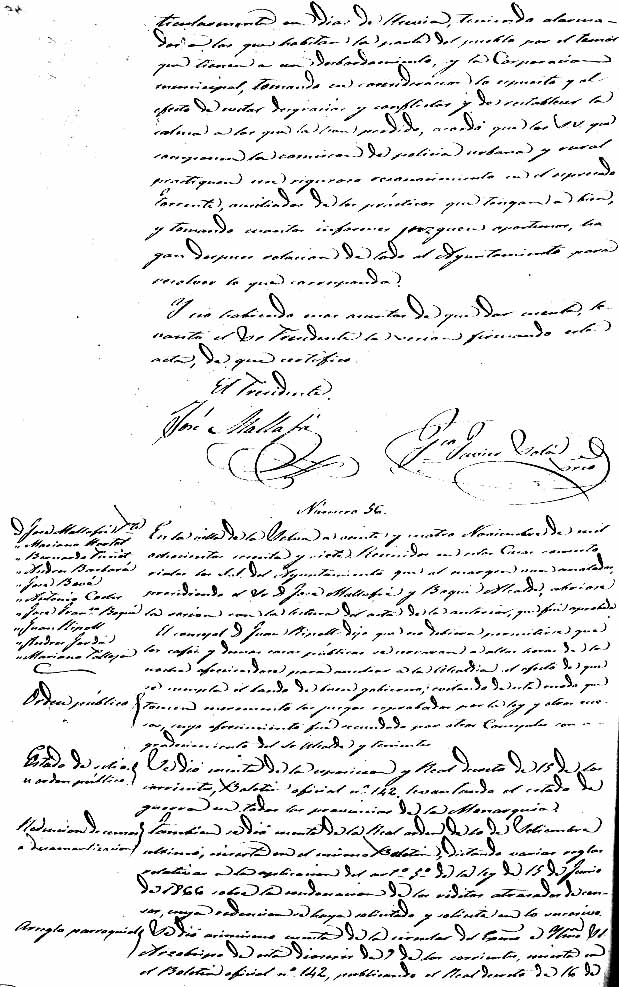 ticularmente en dias de lluvia, teniendo alarma-
dos a los que habitan la parte del pueblo por el temor
que tienen a un desbordamiento, y la Corporacion
municipal, tomando en consideracion lo espuesto y al
efecto de evitar desgracias y conflictos y de restablecer la
calma a los que la han perdido, acordó que los SS. que
componen la comision de policia urbana y rural
practiquen un riguroso reconocimiento en el espresado
torrente, auxiliados de los prácticos que tengan a bien,
y tomando cuantos informes juzguen oportunos, ha-
gan despues relacion de todo al Ayuntamiento para
resolver lo que corresponda.
Y no habiendo mas asuntos de que dar cuenta, le-
vantó el Sr. Presidente la sesion firmando esta
acta, de que certifico.
El Presidente
José Mallafré
Fco. Javier Srio
Número 56.
D. José Mallafré Pte.
" Mariano
" Bernardo
" Andres Barbará
" José Bové
" Antonio
" José Franco. Boqué
" Juan Ripoll
" Andres Jordá
" Mariano
En la villa de la Selva a veinte y cuatro Noviembre de mil
ochocientos sesenta y siete. Reunidos en estas Casas consisto-
riales los S.S. del Ayuntamiento que al margen van anotados,
presidiendo el Sr. D. José Mallafré y Boqué Alcalde, abriose
la sesion con la lectura del acta de la anterior, que fué aprobada
El concejal D. Juan Ripoll dijo que no debiera permitirse que
los cafés y demas casas públicas se cerraran a altas horas de la
noche ofreciendose para ausiliar a la Alcaldia al efecto de que
se cumpla el bando de buen gobierno, evitando de este modo que
Orden público
tomen incremento los juegos reprobados por la ley y otros esce-
sos, cuyo ofrecimiento fué secundado por otros Concejales con a-
gradecimiento del Sr. Alcalde y tenientes
Estado de sitio
u orden público.
Se dió cuenta de la esposicion y Real decreto de 15 de los
corrientes, Boletin oficial nº. 142, levantando el estado de
guerra en todas las provincias de la Monarquia.
Redencion de censos
o desamortizacion
Tambien se dió cuenta de la Real orden de 10 de Setiembre
ultimo, inserta en el mismo Boletin, dictando varias reglas
relativas a la aplicacion del artº. 5º. de la ley de 15 de Junio
de 1866 sobre la condonacion de los reditos atrasados de cen-
sos, cuya redencion se haya solicitado y solicite en lo sucesivo.
Arreglo parroquial
Se dió asimismo cuenta de la circular del Exmo. e Ylmo. Sr.
Arzobispo de esta diocesis de 9 de los corrientes, inserta en
el Boletin oficial nº. 142, publicando el Real decreto de 16 de